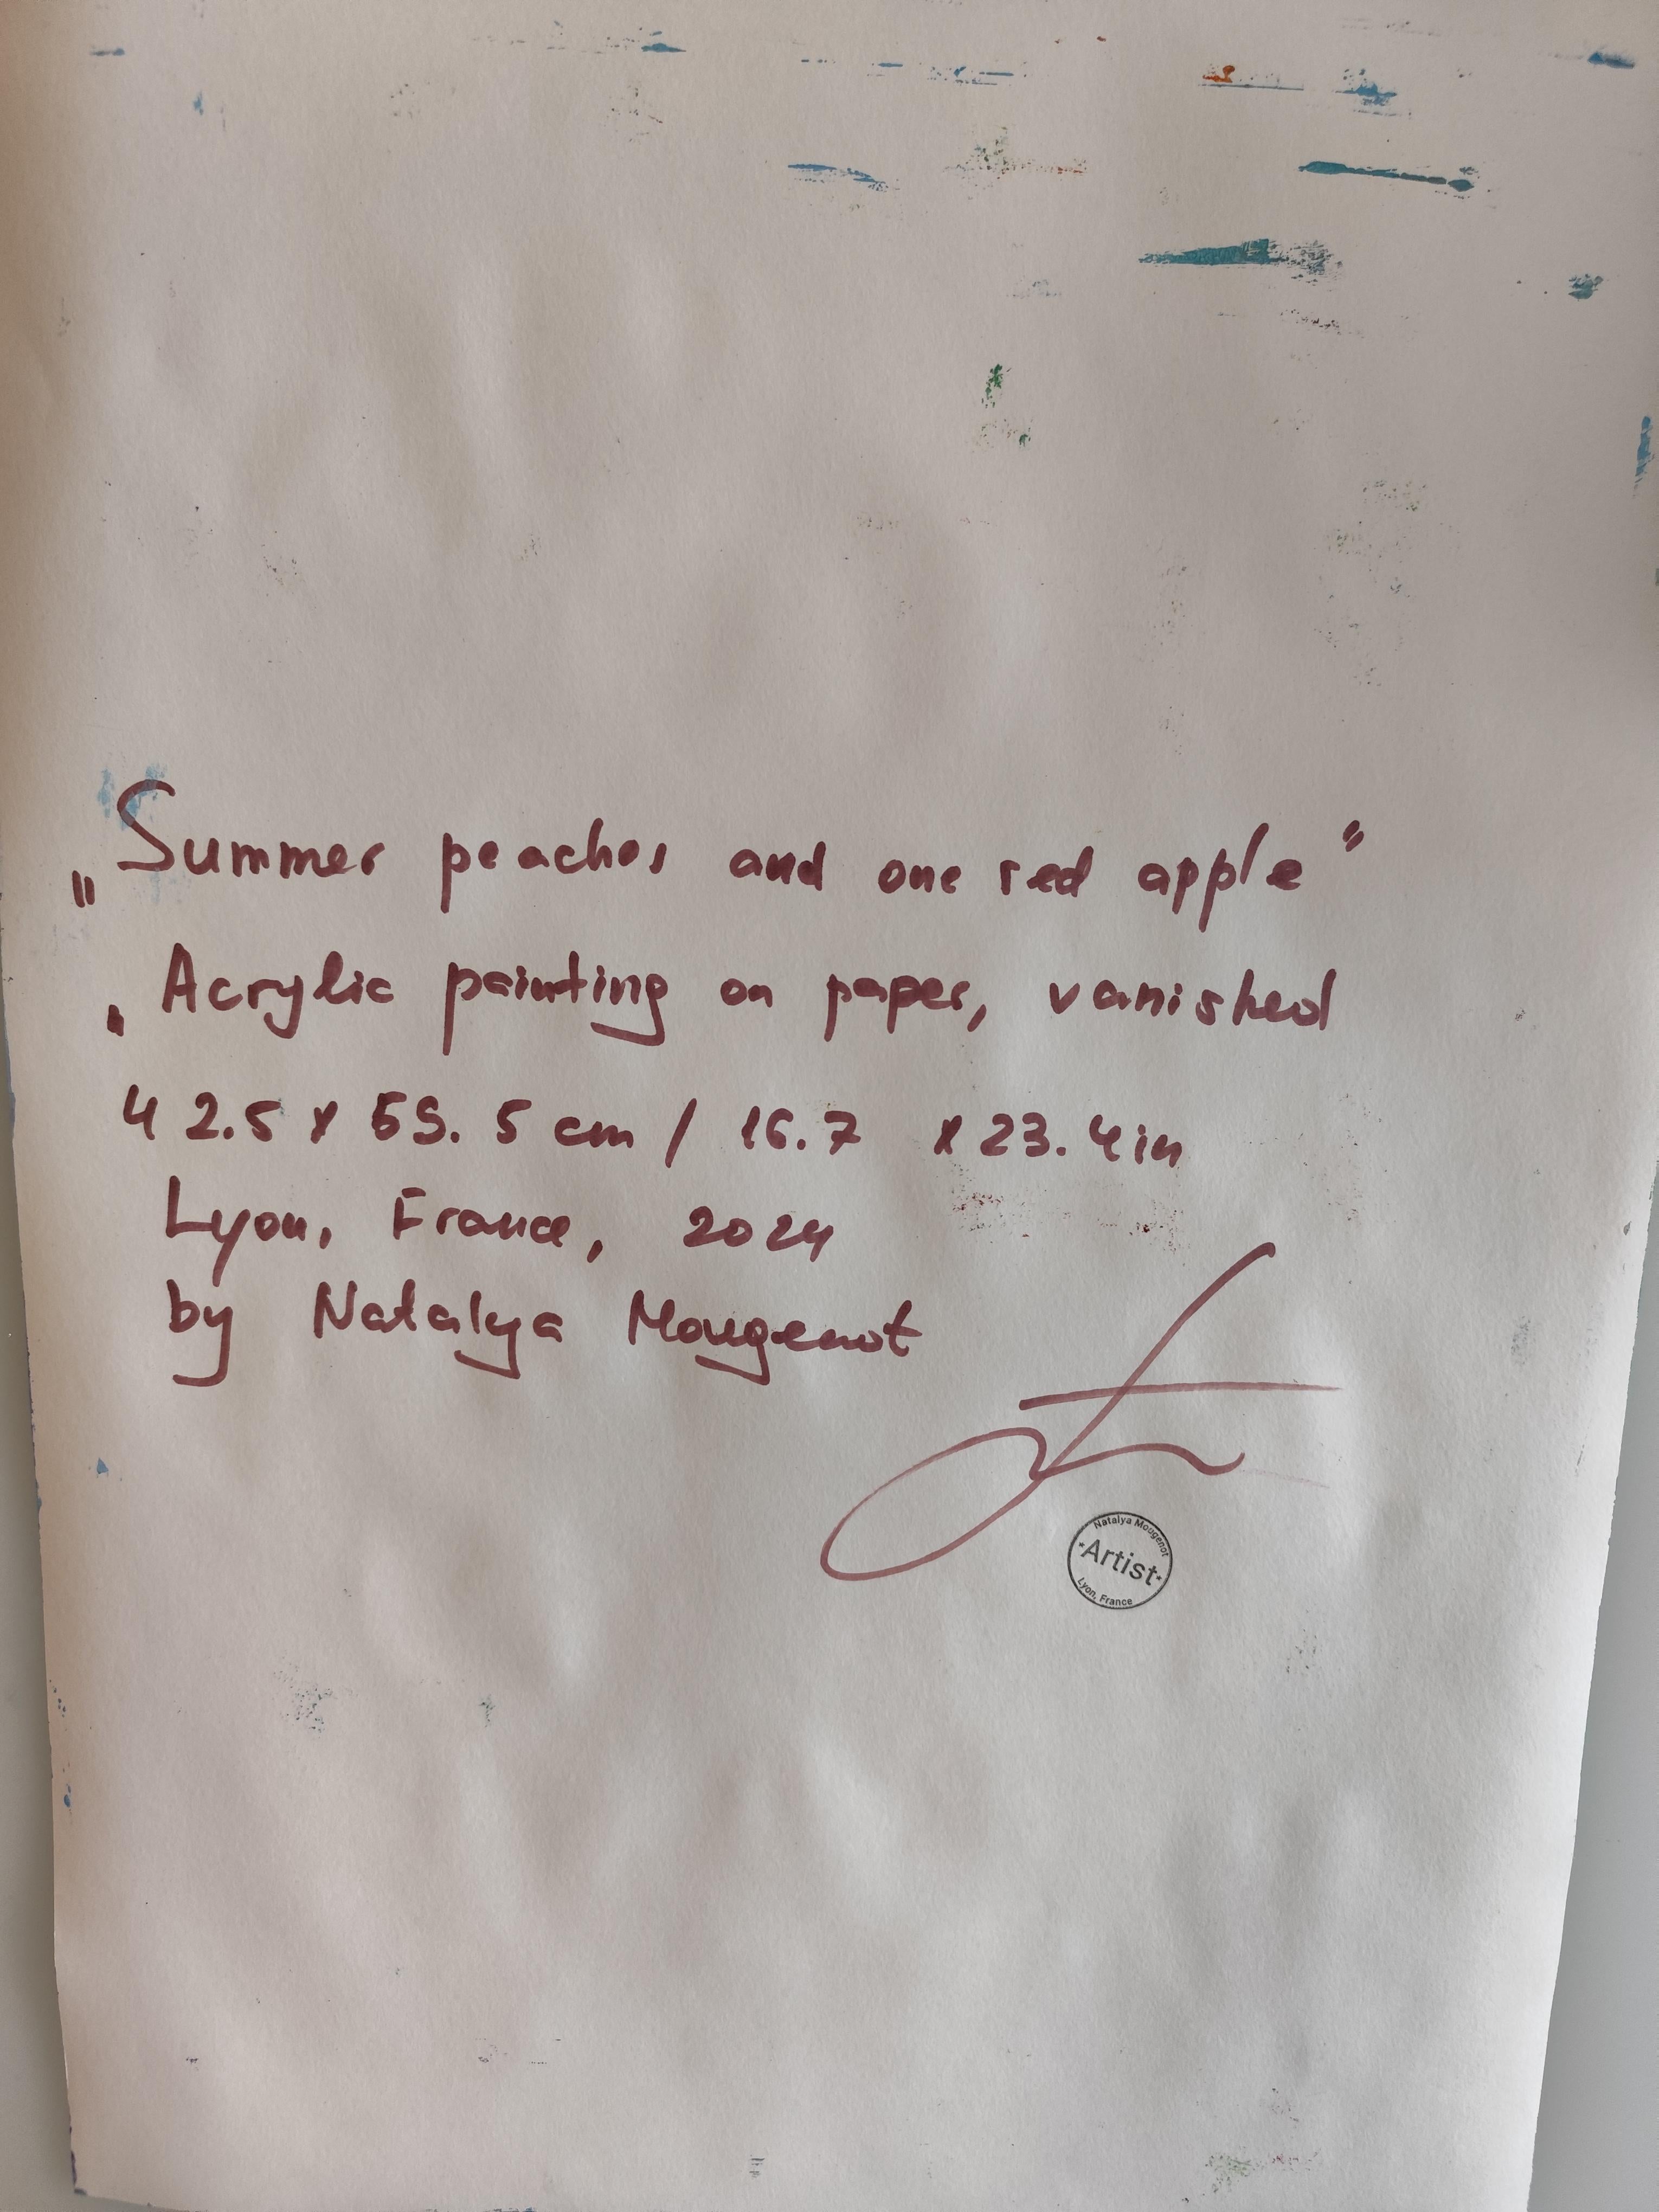 „Summer peaches and one red apple"
Acrylic painting on paper, vanished
42.5 x 59.5 cm / 16.7 x 23.4 in
Lyon, France, 2024
by Natalya Mougenot
Natalya Mougenot
·Artist·
Lyon, France